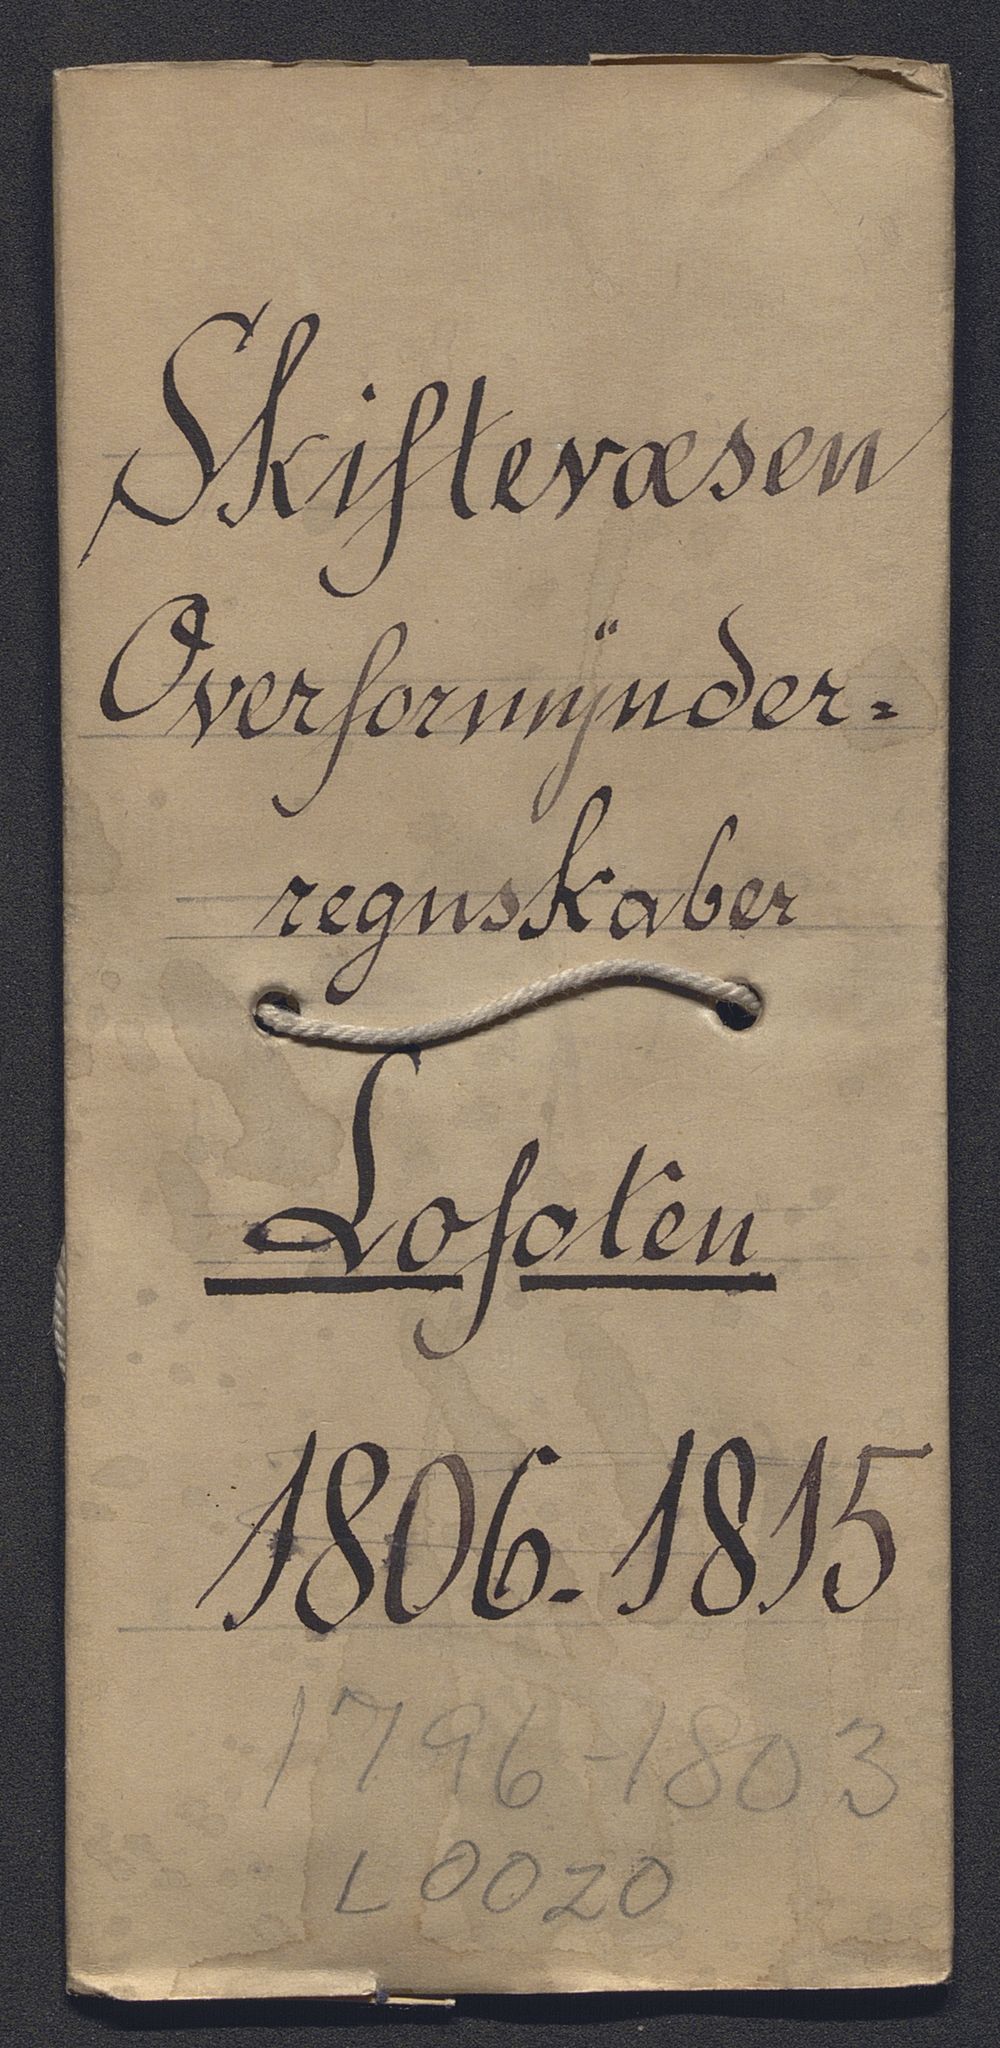 Skiftevæsen
Overformÿnder=
regnskaber
Lofoten
1806-1815
1796-1803
L0020